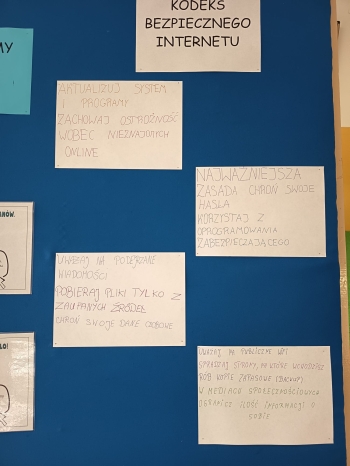 KODEKS
BEZPIECZNEGO
INTERNETU
MY
AKTUALIZUJ SYSTEM
I PROGRAMY
ZACHOWAJ OSTROŻNOŚĆ
WOBEC NIEZNAJOMYCH
ONLINE
NAJWAŻNIEJSZA
ZASADA CHROŃ SWOJE
HASŁA
KORZYSTAJ Z
OPROGRAMOWANIA
ZABEZPIECZAJĄCEGO
UWAŻAJ NA PODEJRZANE
WIADOMOŚCI
POBIERAJ PLIKI TYLKO Z
ZAUFANYCH ŹRÓDEŁ
CHROŃ SWOJE DANE OSOBOWE
UWAŻAJ NA PUBLICZNE WIFI
SPRAWDZAJ STRONY, NA KTÓRE WCHODZISZ
RÓB KOPIE ZAPASOWE (BACKUP)
W MEDIACH SPOŁECZNOŚCIOWYCH
OGRANICZ ILOŚĆ INFORMACJI O
SOBIE